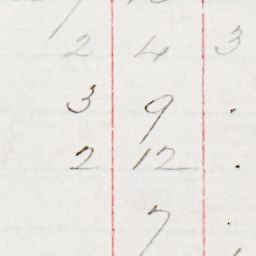 2 4 3
3 9 .
2 12 .
7 .